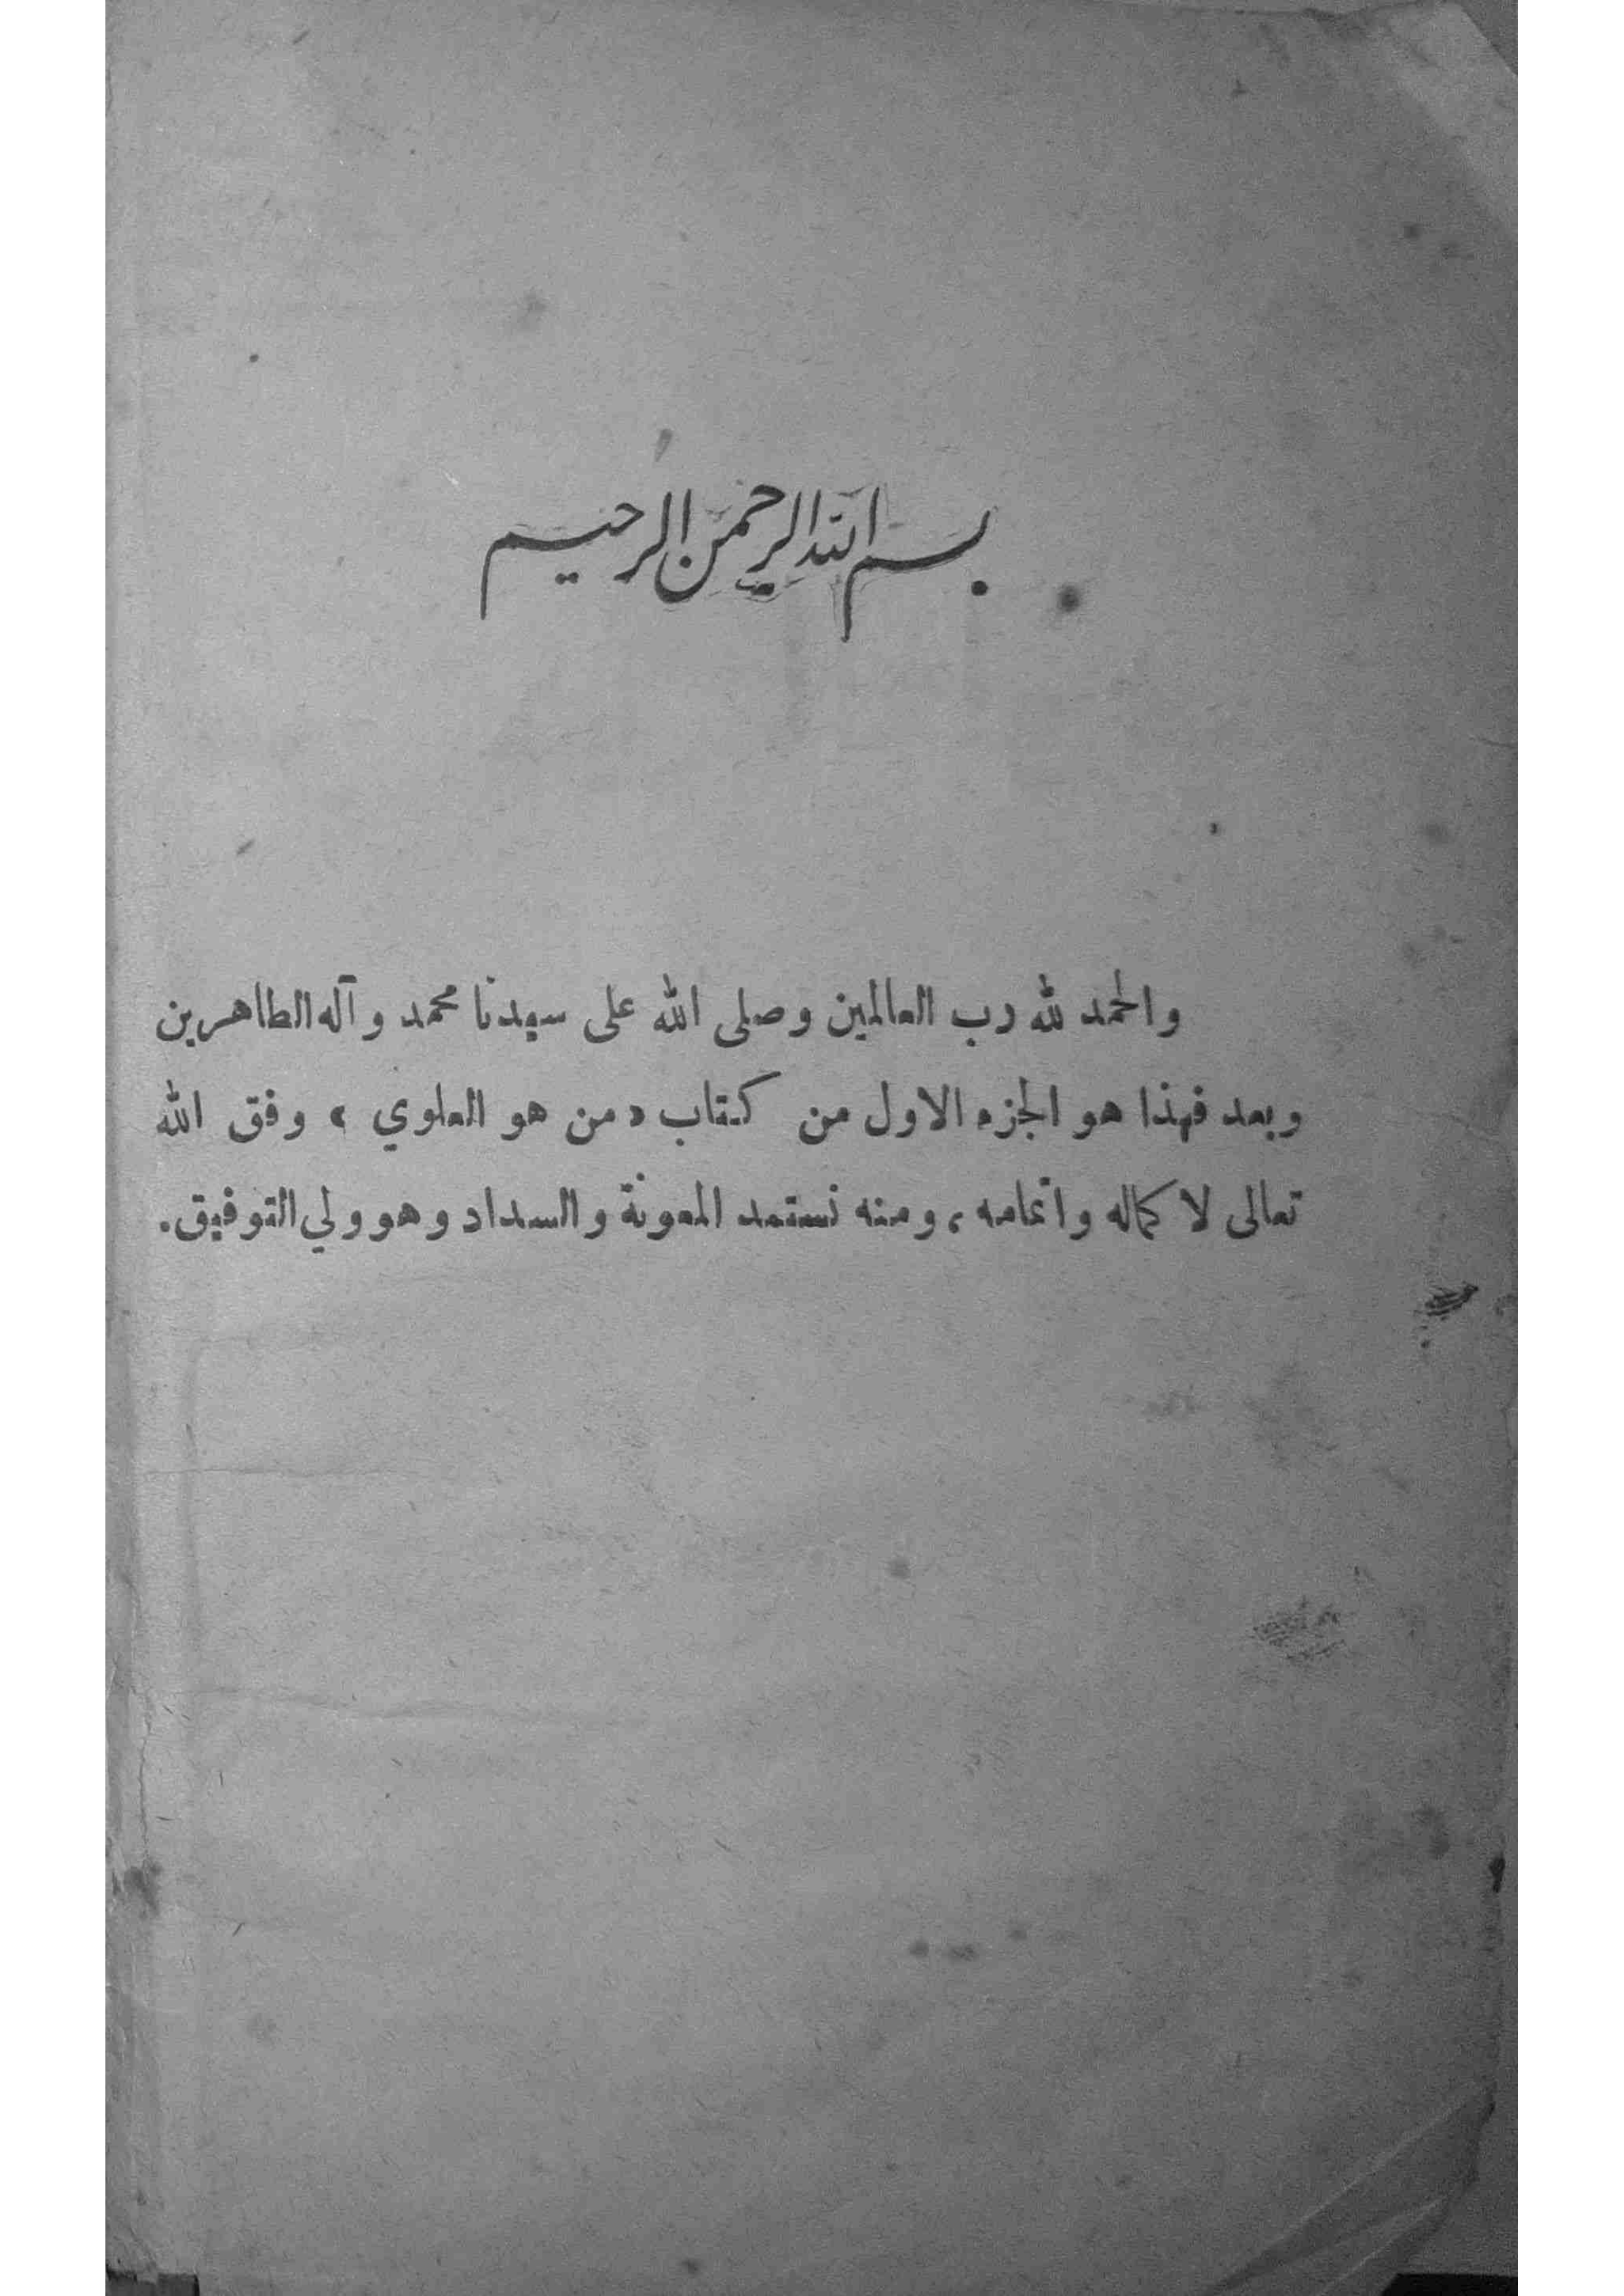 بسم الله الرحمن الرحيم
والحمد لله رب العالمين وصلى الله على سيدنا محمد وآله الطاهرين
وبعد فهذا هو الجزء الاول من كتاب «من هو العلوي» وفق الله
تعالى لا كماله واتمامه، ومنه نستمد المعونة والسداد وهو ولي التوفيق.